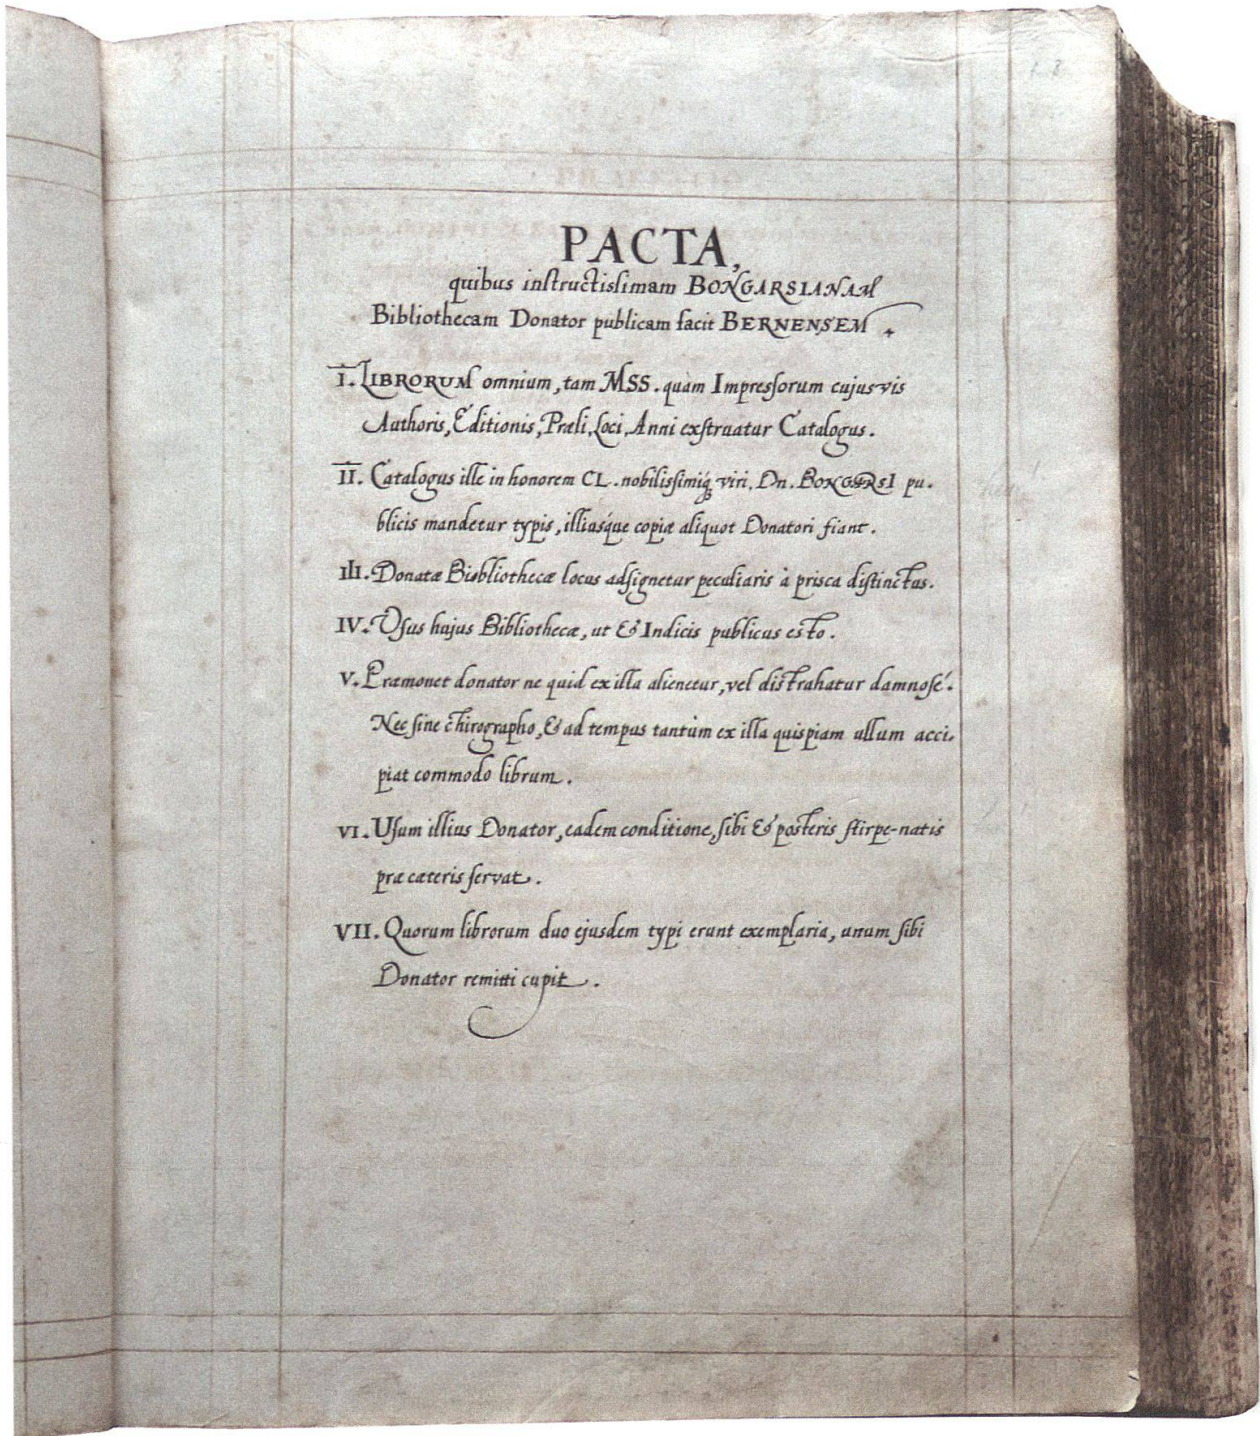 PACTA,
quibus instructissimam BONGARSIANAM
Bibliothecam Donator publicam facit BERNENSEM.
I. LIBRORUM omnium, tam MSS. quàm Impressorum cujusvis
Authoris, Editionis, Præli, Loci, Anni exstruatur Catalogus.
II. Catalogus ille in honorem CL. nobilissimiq́ viri, Dn. BONGARSI pu-
blicis mandetur typis, illiusq́ue copiæ aliquot Donatori fiant.
III. Donatæ Bibliothecæ locus adsignetur peculiaris à prisca distinctus.
IV. Usus hujus Bibliothecæ, ut & Indicis publicus esto.
V. Præmonet donator ne quid ex illa alienetur, vel distrahatur damnosé.
Nec sine chirographo, & ad tempus tantùm ex illa quispiam ullum acci-
piat commodo librum.
VI. Usum illius Donator, eadem conditione, sibi & posteris stirpe-natis
præ cæteris servat.
VII. Quorum librorum duo ejusdem typi erunt exemplaria, unum sibi
Donator remitti cupit.